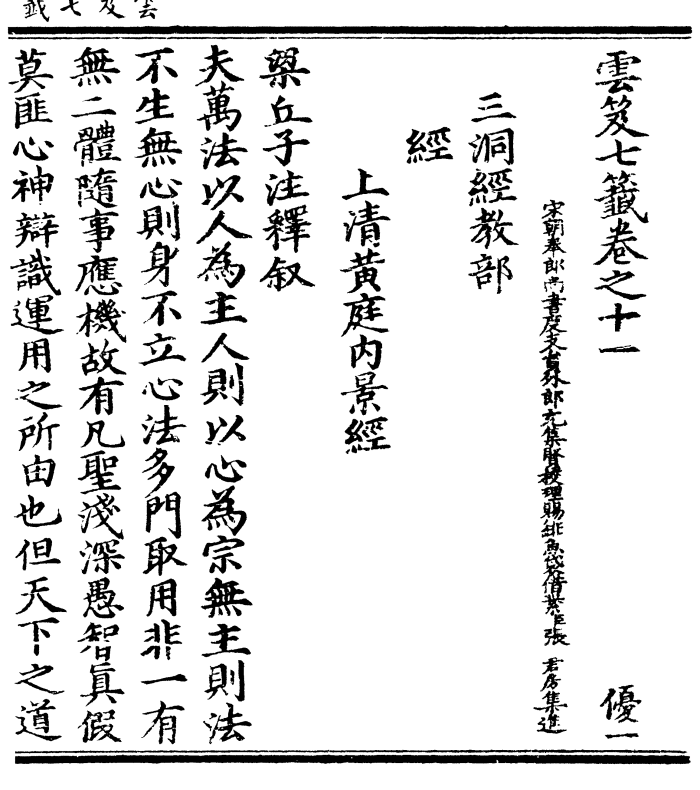 雲笈七籤卷之十一 優一
宋朝奉郎尚書度支員外郎充集賢校理賜緋魚袋借紫臣張 君房集進
三洞經教部
經
上清黃庭內景經
梁丘子注釋叙
夫萬法以人為主人則以心為宗無主則法
不生無心則身不立心法多門取用非一有
無二體隨事應機故有凡聖淺深愚智真假
莫匪心神辯識運用之所由也但天下之道